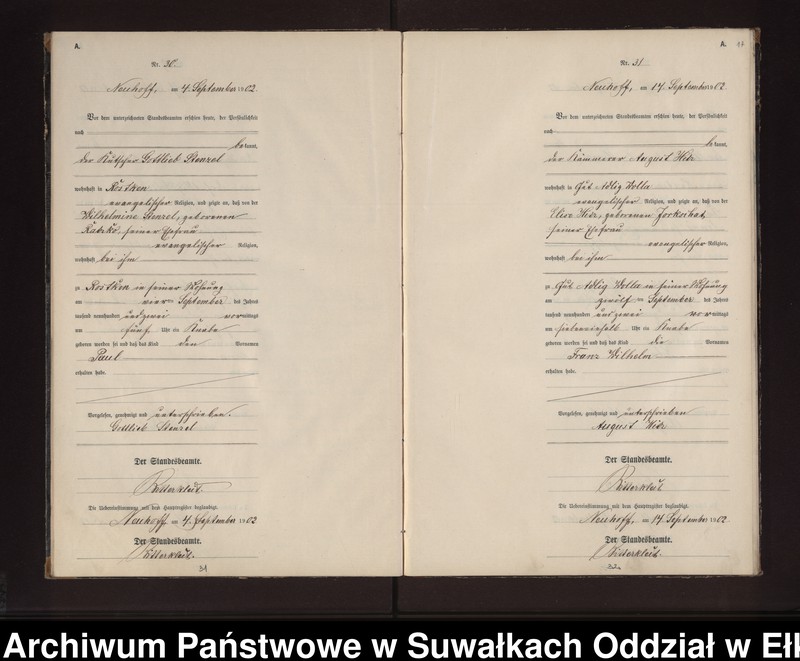 A.
Nr. 30.
Neuhoff, am 4. September 1902.
Vor dem unterzeichneten Standesbeamten erschien heute, der Persönlichkeit
nach
bekannt,
der Kutscher Gottlieb Stenzel
wohnhaft in Rostken
evangelischer Religion, und zeigte an, daß von der
Wilhelmine Stenzel, geborenen
seiner Ehefrau
evangelischer Religion,
wohnhaft bei ihm
zu Rostken in seiner Wohnung
am vier September des Jahres
tausend neunhundert und zwei vormittags
um fünf Uhr ein Knabe
geboren worden sei und daß das Kind den Vornamen
Paul
erhalten habe.
Vorgelesen, genehmigt und unterschrieben.
Gottlieb Stenzel
Der Standesbeamte.
Die Uebereinstimmung mit dem Hauptregister beglaubigt.
Neuhoff am 4. September 1902
Der Standesbeamte.
31
A.
Nr. 31
Neuhoff, am 14. September 1902.
Vor dem unterzeichneten Standesbeamten erschien heute, der Persönlichkeit
nach
bekannt,
der Kämmerer August
wohnhaft in Gut Adlig Wolla
evangelischer Religion, und zeigte an, daß von der
geborenen
seiner Ehefrau
evangelischer Religion,
wohnhaft bei ihm
zu Gut Adlig Wolla in seiner Wohnung
am zwölf September des Jahres
tausend neunhundert und zwei vormittags
um siebeneinhalb Uhr ein Knabe
geboren worden sei und daß das Kind die Vornamen
Franz Wilhelm
erhalten habe.
Vorgelesen, genehmigt und unterschrieben
August
Der Standesbeamte.
Die Uebereinstimmung mit dem Hauptregister beglaubigt.
Neuhoff, am 14. September 1902
Der Standesbeamte.
32
Archiwum Państwowe w Suwałkach Oddział w Ełk